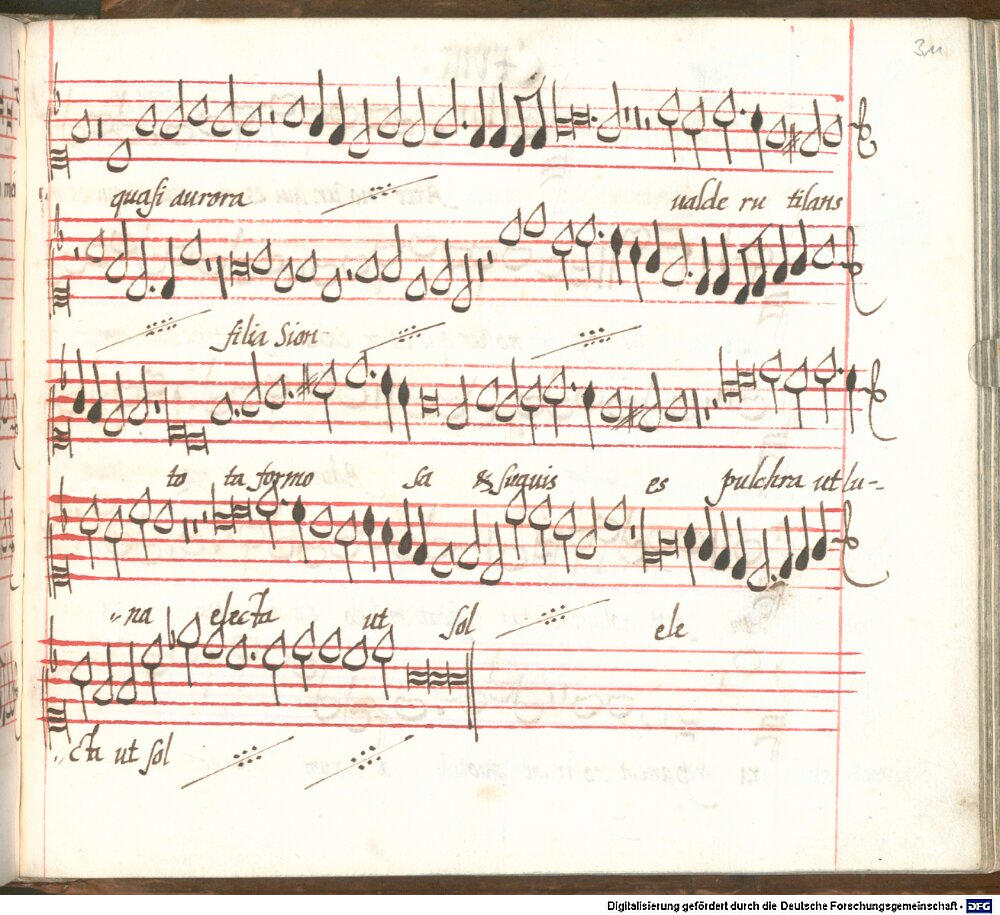 quasi aurora ualde ru tilans
filia Sion
to ta formo sa & suauis es pulchra ut lu-
-na electa ut sol ele
-cta ut sol
Digitalisierung gefördert durch die Deutsche Forschungsgemeinschaft - DFG